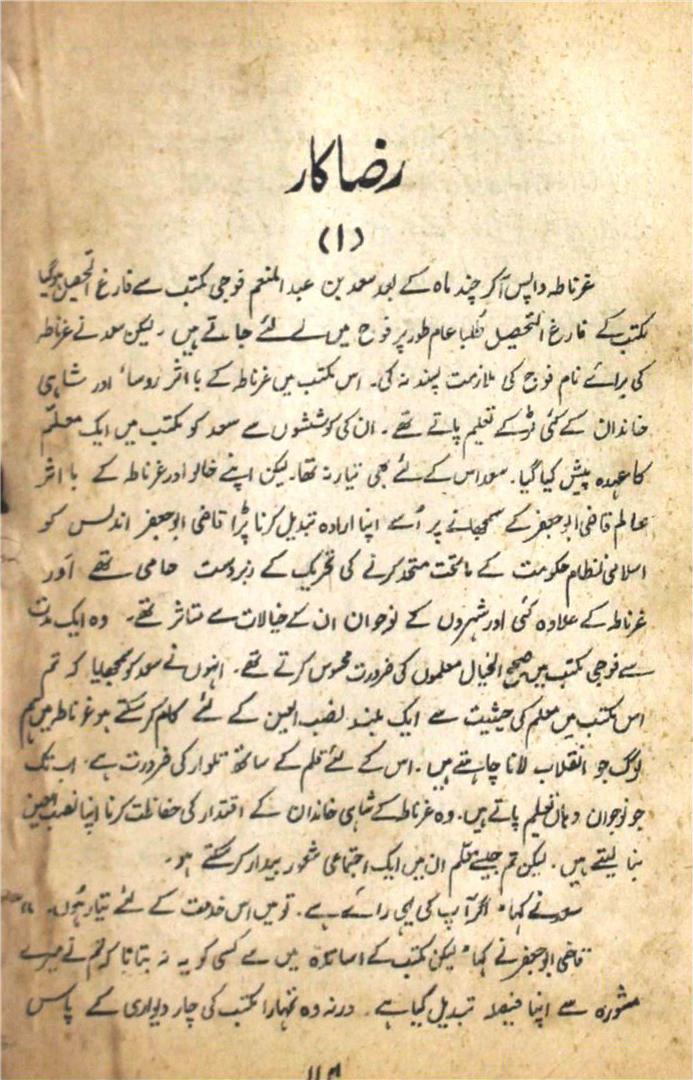 رضاکار
(۱)
غرناطہ واپس آکر چند ماہ کے بعد سعد بن عبدالمنعم فوجی مکتب سے فارغ التحصیل ہوگیا
مکتب کے فارغ التحصیل طلبا عام طور پر فوج میں لے لئے جاتے ہیں ۔ لیکن سعد نے غرناطہ
کی برائے نام فوج کی ملازمت پسند نہ کی۔ اس مکتب میں غرناطہ کے با اثر روسا ٔ اور شاہی
خاندان کے کئی لڑکے تعلیم پاتے تھے ۔ ان کی کوششوں سے سعد کو مکتب میں ایک معلّم
کا عہدہ پیش کیا گیا۔ سعد اس کے لئے بھی تیار نہ تھا۔ لیکن اپنے خالو اور غرناطہ کے با اثر
عالم قاضی ابوجعفر کے سمجھانے پر اُسے اپنا ارادہ تبدیل کرنا پڑا قاضی ابوجعفر اندلس کو
اسلامی نظام حکومت کے ماتحت متحد کرنے کی تحریک کے زبردست حامی تھے اور
غرناطہ کے علاوہ کئی اور شہروں کے نوجوان ان کے خیالات سے متاثر تھے ۔ وہ ایک مدت
سے فوجی مکتب میں صحیح الخیال معلموں کی ضرورت محسوس کرتے تھے ۔ انہوں نے سعد کو سمجھایا کہ تم
اس مکتب میں معلم کی حیثیت سے ایک بلند نصب العین کے لئے کام کر سکتے ہو غرناطہ میں ہم
لوگ جو انقلاب لانا چاہتے ہیں ۔ اس کے لئے قلم کے ساتھ تلوار کی ضرورت ہے ۔ اب تک
جو نوجوان وہاں تعلیم پاتے ہیں۔ وہ غرناطہ کے شاہی خاندان کے اقتدار کی حفاظت کرنا اپنا نصب العین
بنا لیتے ہیں ۔ لیکن تم جیسے معلم ان میں ایک اجتماعی شعور بیدار کر سکتے ہو ۔
سعد نے کہا " اگر آپ کی یہی رائے ہے ۔ تو میں اس خدمت کے لئے تیار ہوں۔ "
قاضی ابوجعفر نے کہا " لیکن مکتب کے اساتذہ میں سے کسی کو یہ نہ بتانا کہ تم نے میرے
مشورہ سے اپنا فیصلہ تبدیل کیا ہے ۔ ورنہ وہ تمہارا مکتب کی چار دیواری کے پاس